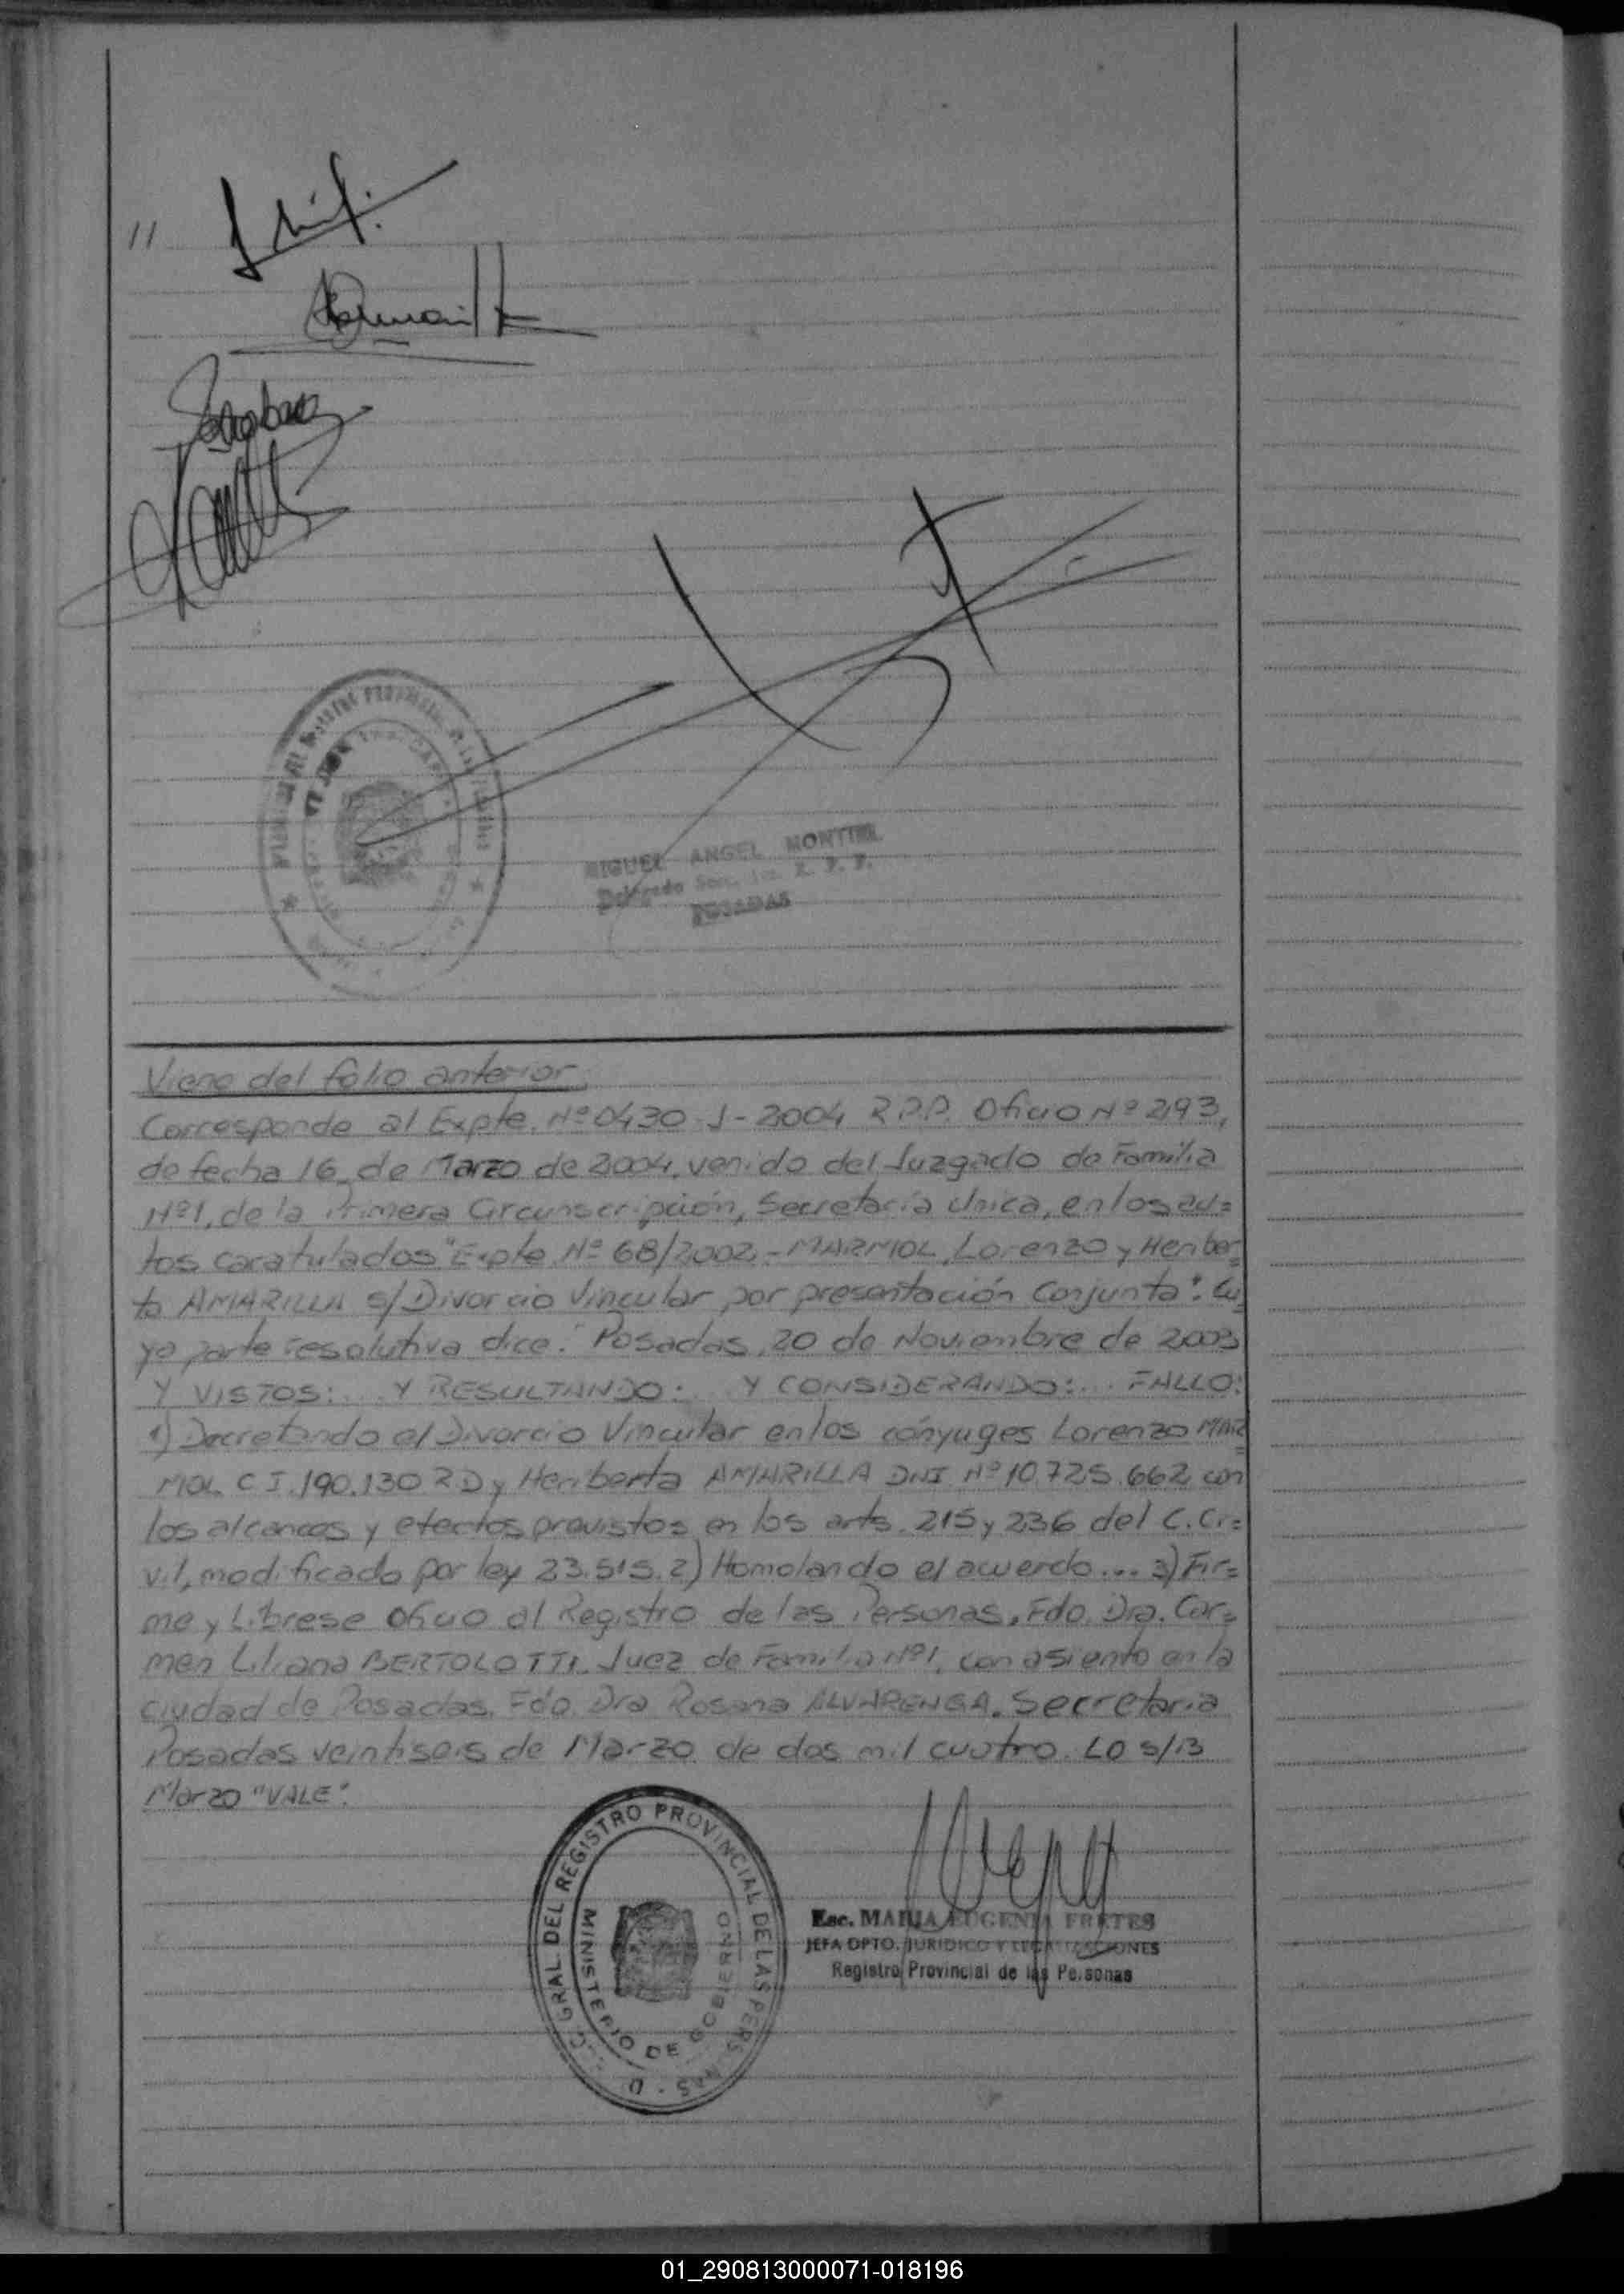 11
MIGUEL ANGEL MONTIEL
Delegado Secc. 1ra. R. P. P.
POSADAS
Viene del folio anterior
Corresponde al Expte. Nº 0430-J-2004 R.P.P. Oficio Nº 293,
de fecha 16 de Marzo de 2004, venido del Juzgado de Familia
Nº1, de la Primera Circunscripción, Secretaría Unica, en los au=
tos caratulados "Expte Nº 68/2002.- MARMOL, Lorenzo y Heriber=
ta AMARILLA s/Divorcio Vincular por presentación Conjunta": Cu
ya parte resolutiva dice: "Posadas, 20 de Noviembre de 2003
Y VISTOS:.. Y RESULTANDO:.. Y CONSIDERANDO:... FALLO:
1) Decretando el Divorcio Vincular en los cónyuges Lorenzo MAR=
MOL C I. 190.130 RD y Heriberta AMARILLA DNI Nº 10.725.662 con
los alcances y efectos previstos en los arts. 215 y 236 del C. Ci=
vil, modificado por ley 23.515. 2) Homolando el acuerdo... 3) Fir=
me y Librese Oficio al Registro de las Personas. Fdo. Dra. Car=
men Liliana BERTOLOTTI. Juez de Familia Nº1, con asiento en la
ciudad de Posadas. Fdo. Dra Rosana ALVARENGA. Secretaria
Posadas veintiseis de Marzo de dos mil cuatro. LO s/B
Marzo "VALE".
GRAL DEL REGISTRO PROVINCIAL DE LAS PERSONAS
MINISTERIO DE GOBIERNO
Esc. MARIA EUGENIA FRETES
JEFA DPTO. JURIDICO Y LEGALIZACIONES
Registro Provincial de las Personas
01_290813000071-018196